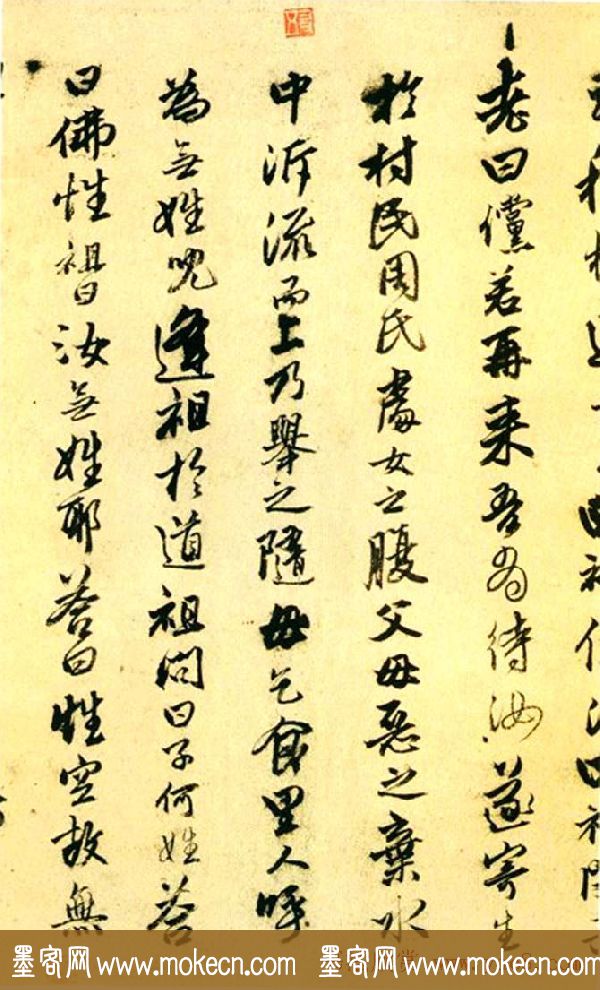 老曰儻若再来吾待汝遂寄生
於村民周氏處女之腹父母惡之棄水
中泝流而上乃舉之隨母乞食里人呼
為无姓児逢祖於道祖問曰子何姓答
曰佛性祖曰汝无姓耶答曰性空故無
墨客网 www.mokecn.com 墨客网 www.mokecn.com